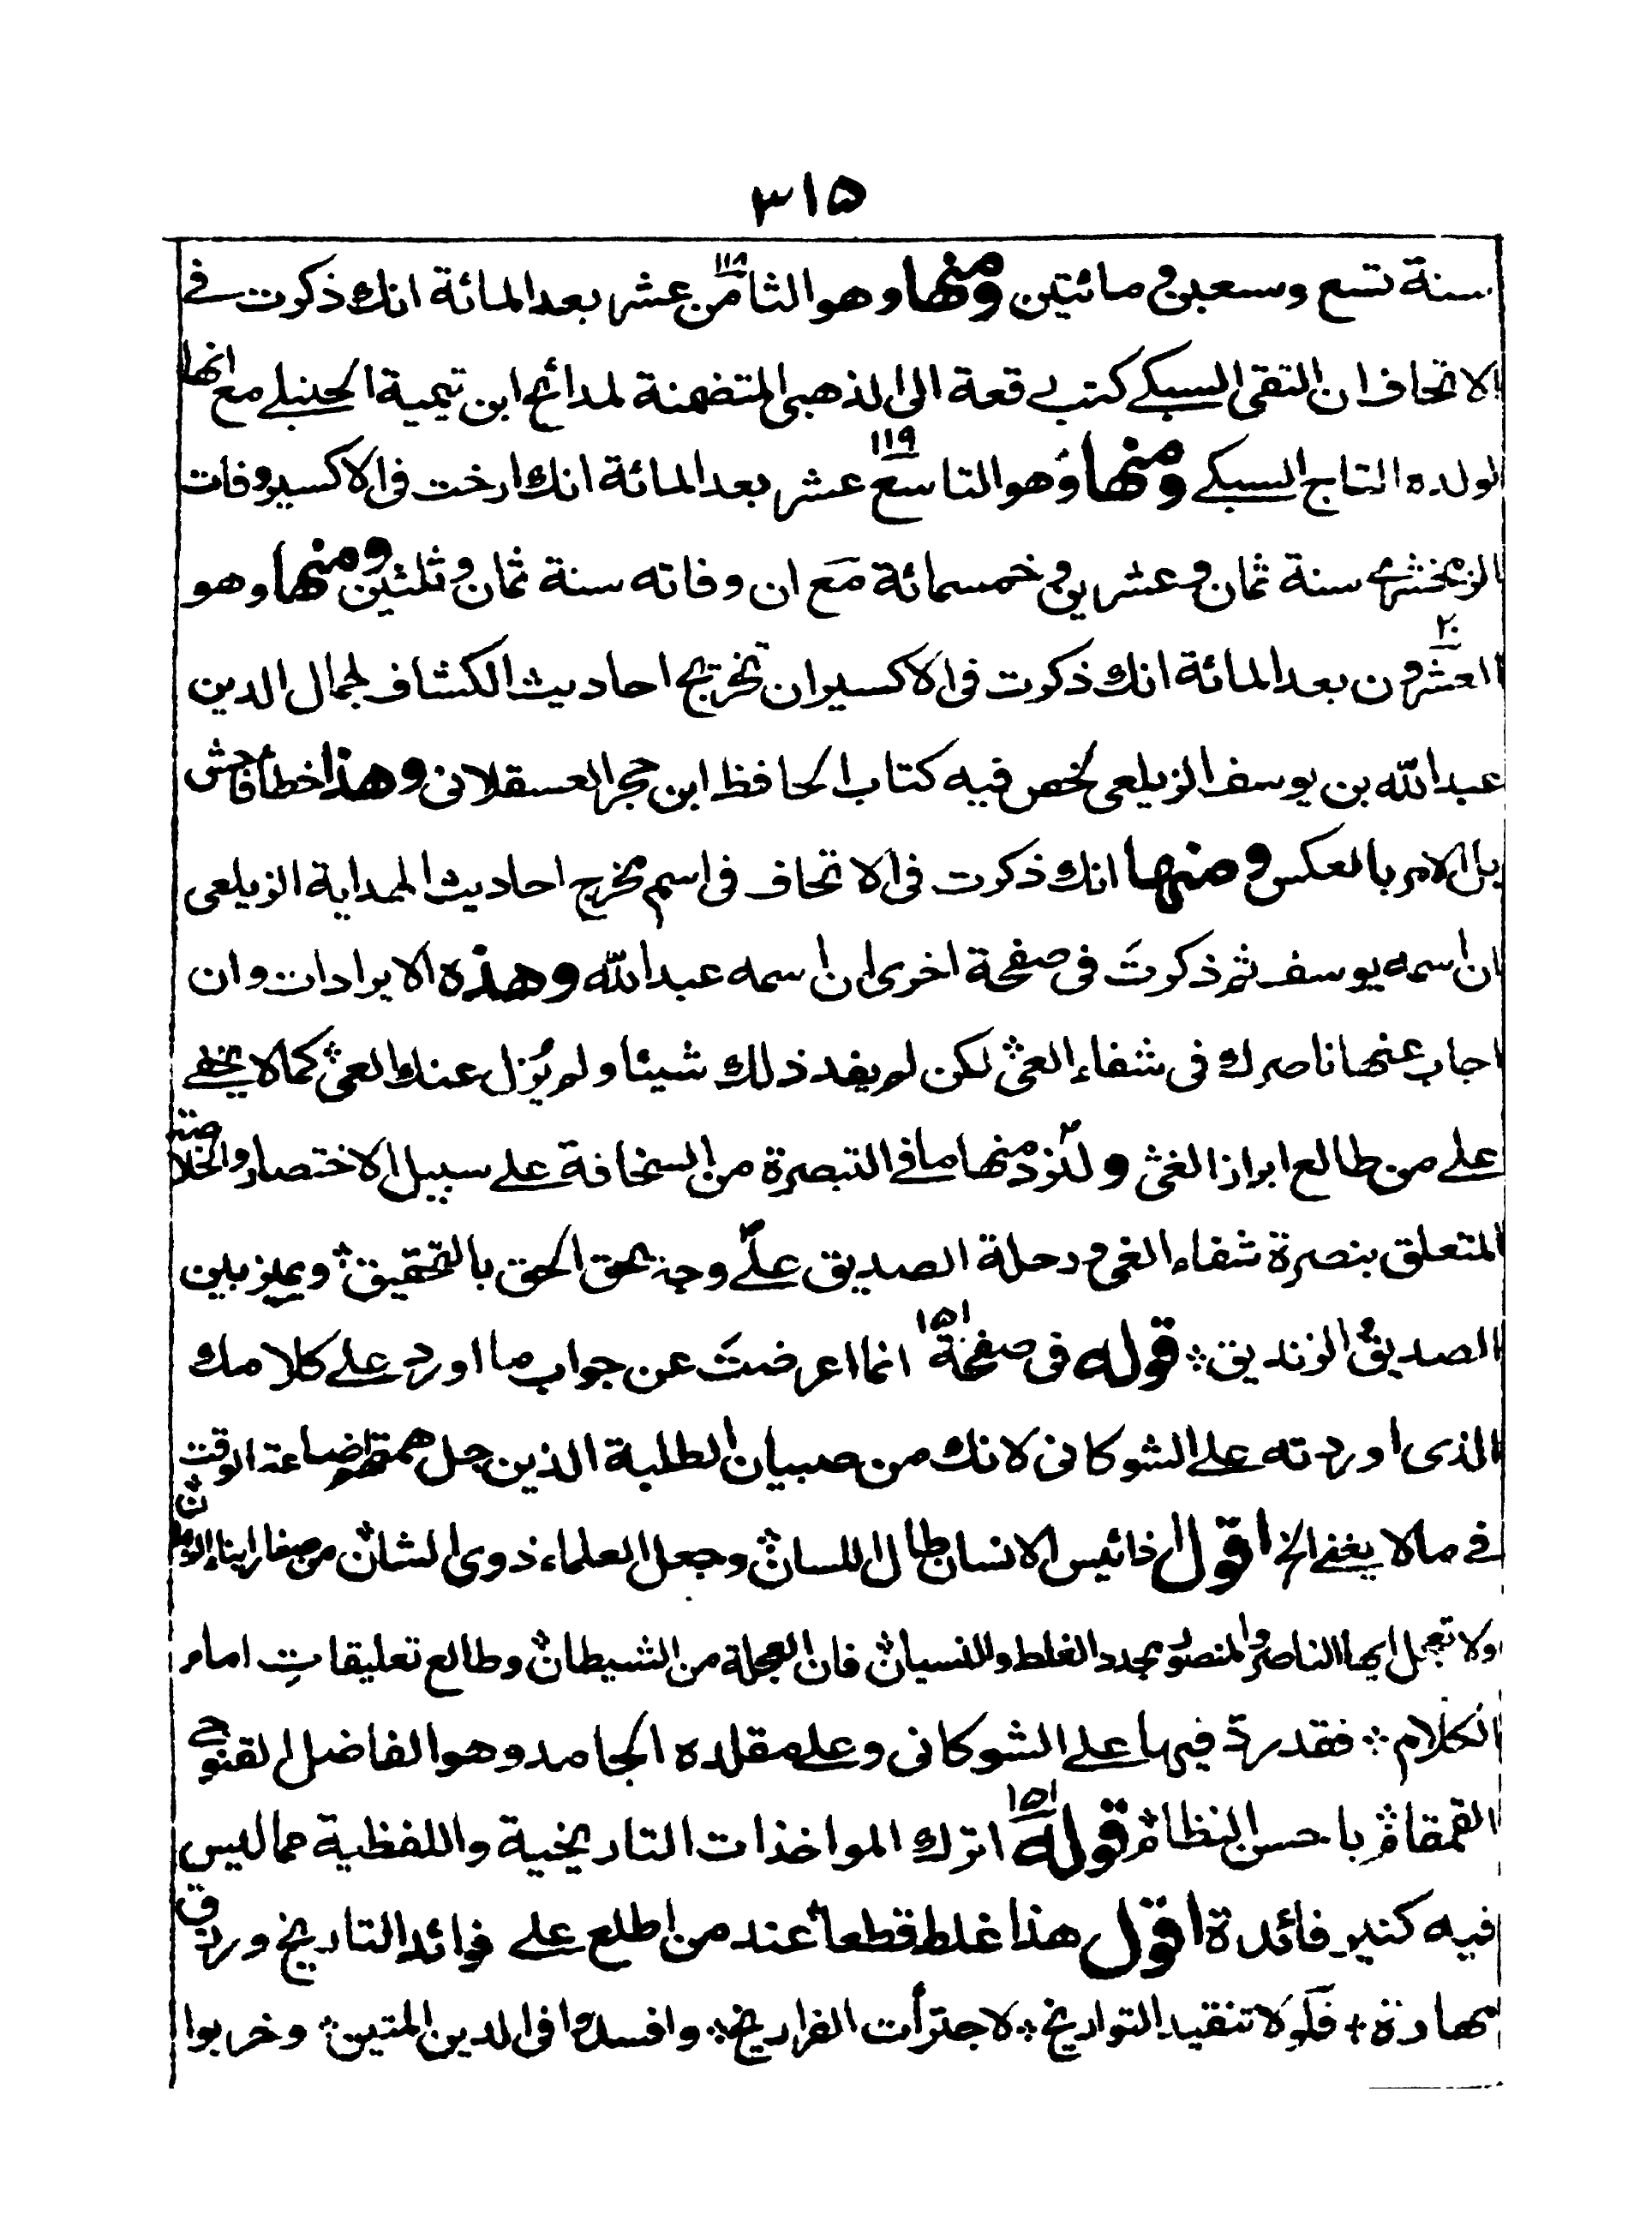 ٣١۵
سنة تسع وسبعين ومائتين ومنها وهو الثامن ١١٨ عشر بعد المائة انك ذكرت في
الاتحاف ان التقى السبكي كتب رقعة الى الذهبى المتضمنة لمدائح ابن تيمية الحنبلي مع انها
لولده التاج السبكي ومنها وهو التاسع ١١٩ عشر بعد المائة انك ارخت فى الاكسير وفات
الزمخشري سنة ثمان وعشرين وخمسمائة مع ان وفاته سنة ثمان وثلثين ومنها وهو
العشرون ٢٠ بعد المائة انك ذكرت فى الاكسير ان تخريج احاديث الكشاف لجمال الدين
عبد الله بن يوسف الزيلعى لخص فيه كتاب الحافظ ابن حجر العسقلانى وهذا خطأ فاحش
بل الامر بالعكس ومنها انك ذكرت فى الاتحاف فى اسم مخرج احاديث الهداية الزيلعى
ان اسمه يوسف ثم ذكرتَ فى صفحة اخرى ان اسمه عبد الله وهذه الايرادات وان
اجاب عنها ناصرك فى شفاء العىّ لكن لم يفد ذلك شيئا ولم يُزل عنك العىّ كما لا يخفى
على من طالع ابراز الغىّ ولنزد منها ما في التبصرة من السخافة على سبيل الاختصار والخلاصة
المتعلق بنصرة شفاء العى ورحلة الصديق علىّ وجه يحق الحق بالتحقيق ويميز بين
الصديق والزنديق قوله فى صفحة ١٥١ انما اعرضتَ عن جواب ما اورد على كلامك
الذى اوردته على الشوكانى لانك من صبيان الطلبة الذين جل همتهم اضاعة الوقت
في ما لا يغنى الخ اقول اذا ئيس الانسان طال اللسان وجعل العلماء ذوى الشان من صغار ابناء الزمان
ولا تعجل ايها الناصر والمنصور بمجدد الغلط والنسيان فان العجلة من الشيطان وطالع تعليقاتِ امام
الكلام فقد ردّ فيها على الشوكانى وعلى مقلده الجامد وهو الفاضل القنوجي
القمقام باحسن النظام قوله ١٥١ اترك المواخذات التاريخية واللفظية مما ليس
فيه كثير فائدة اقول هذا غلط قطعا عند من اطلع على فوائد التاريخ ورزق
مهارة + فلولا تنقيد التواريخ لاجترأت الفراريخ وافسدوا فى الدين المتين وخربوا